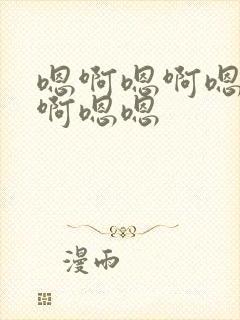 嗯啊嗯啊嗯
啊嗯嗯
漫雨